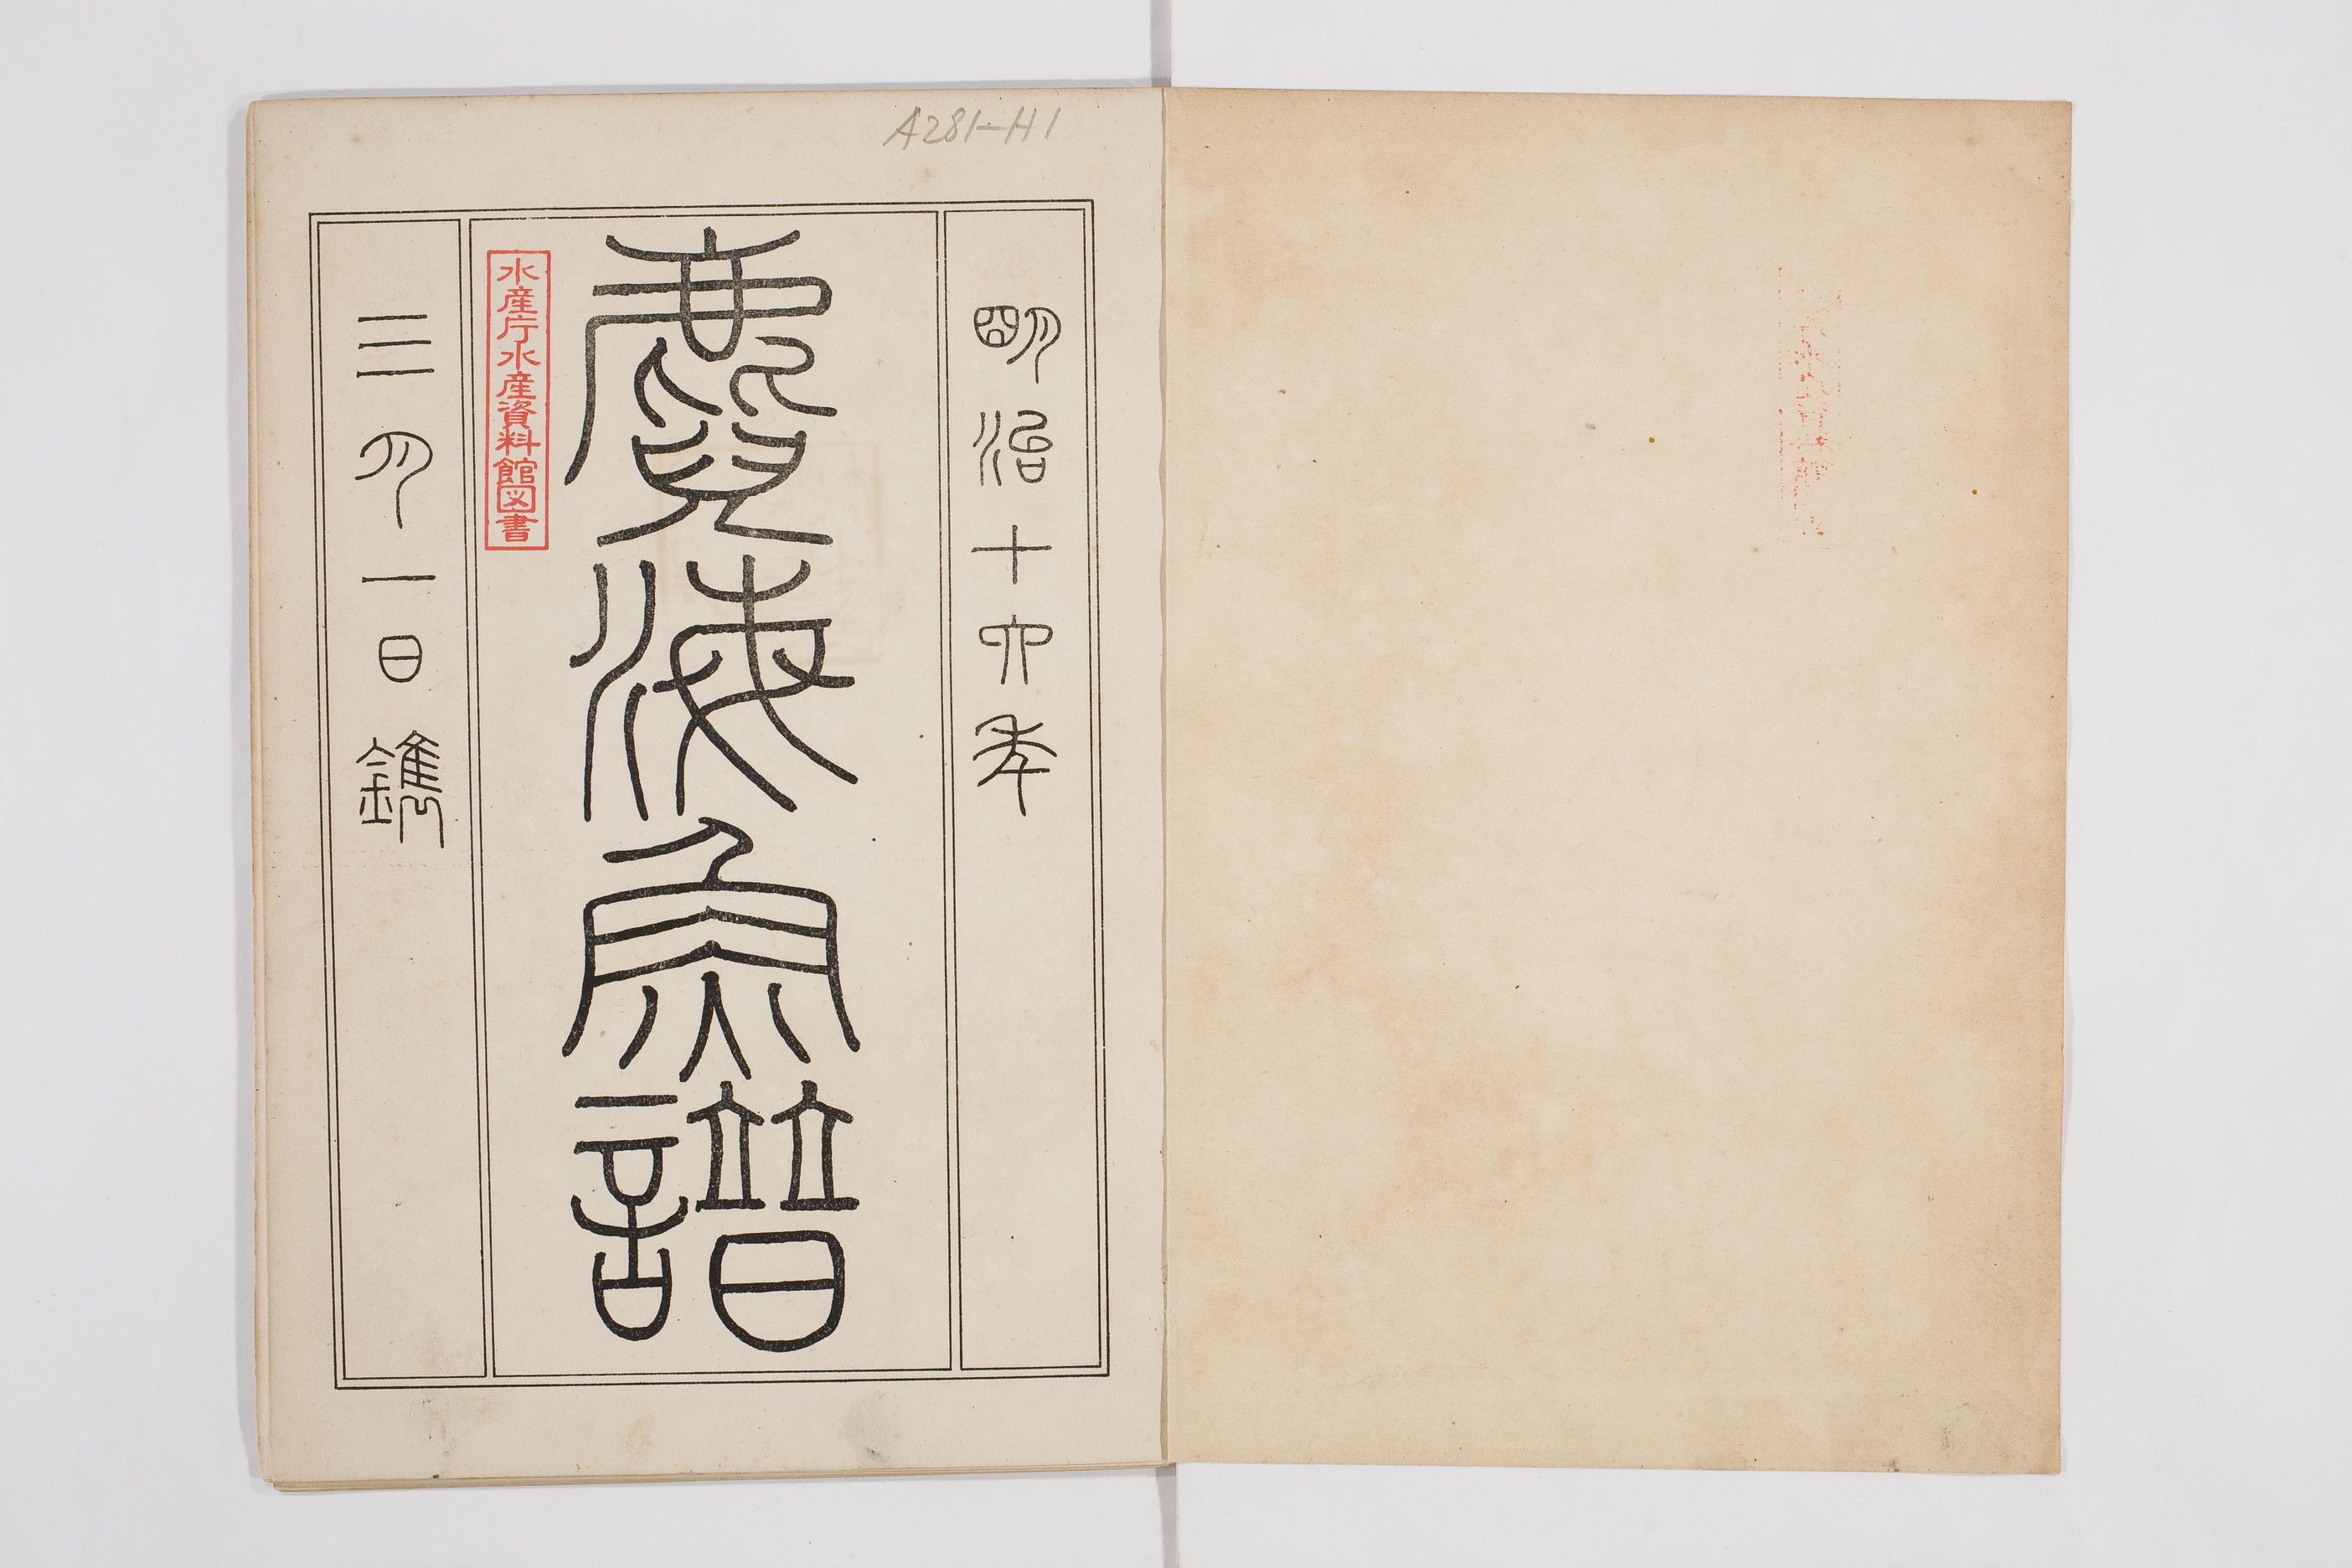 A281-H1
明治十六年
麑海魚譜
水産庁水産資料館図書
三月一日鐫